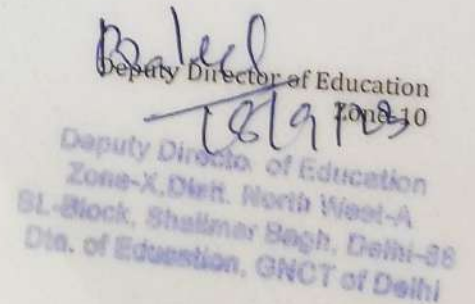 Deputy Director of Education
Zone 10
18/9/23
Deputy Director of Education
Zone-X, Distt. North West-A
BL-Block, Shalimar Bagh, Delhi-88
Dte. of Education, GNCT of Delhi